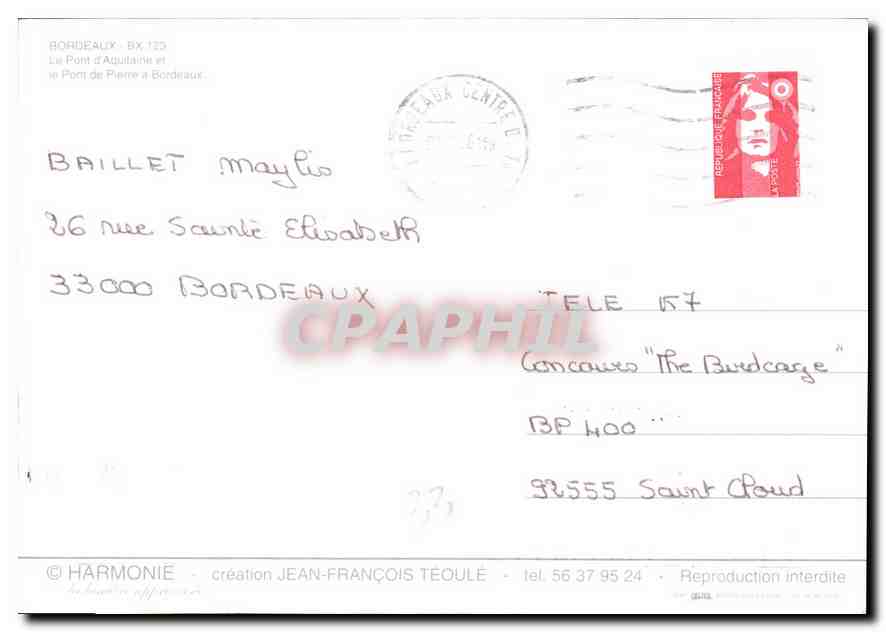 BORDEAUX - BX 123
Le Pont d'Aquitaine et
le Pont de Pierre à Bordeaux.
BORDEAUX CENTRE
RÉPUBLIQUE FRANÇAISE
LA POSTE
BAILLET Maylis
26 rue Sainte Elisabeth
33000 BORDEAUX
CPAPHIL
TELE K7
Concours "The Birdcage"
BP 400
92555 Saint Cloud
© HARMONIE - création JEAN-FRANÇOIS TÉOULÉ - tel. 56 37 95 24 - Reproduction interdite